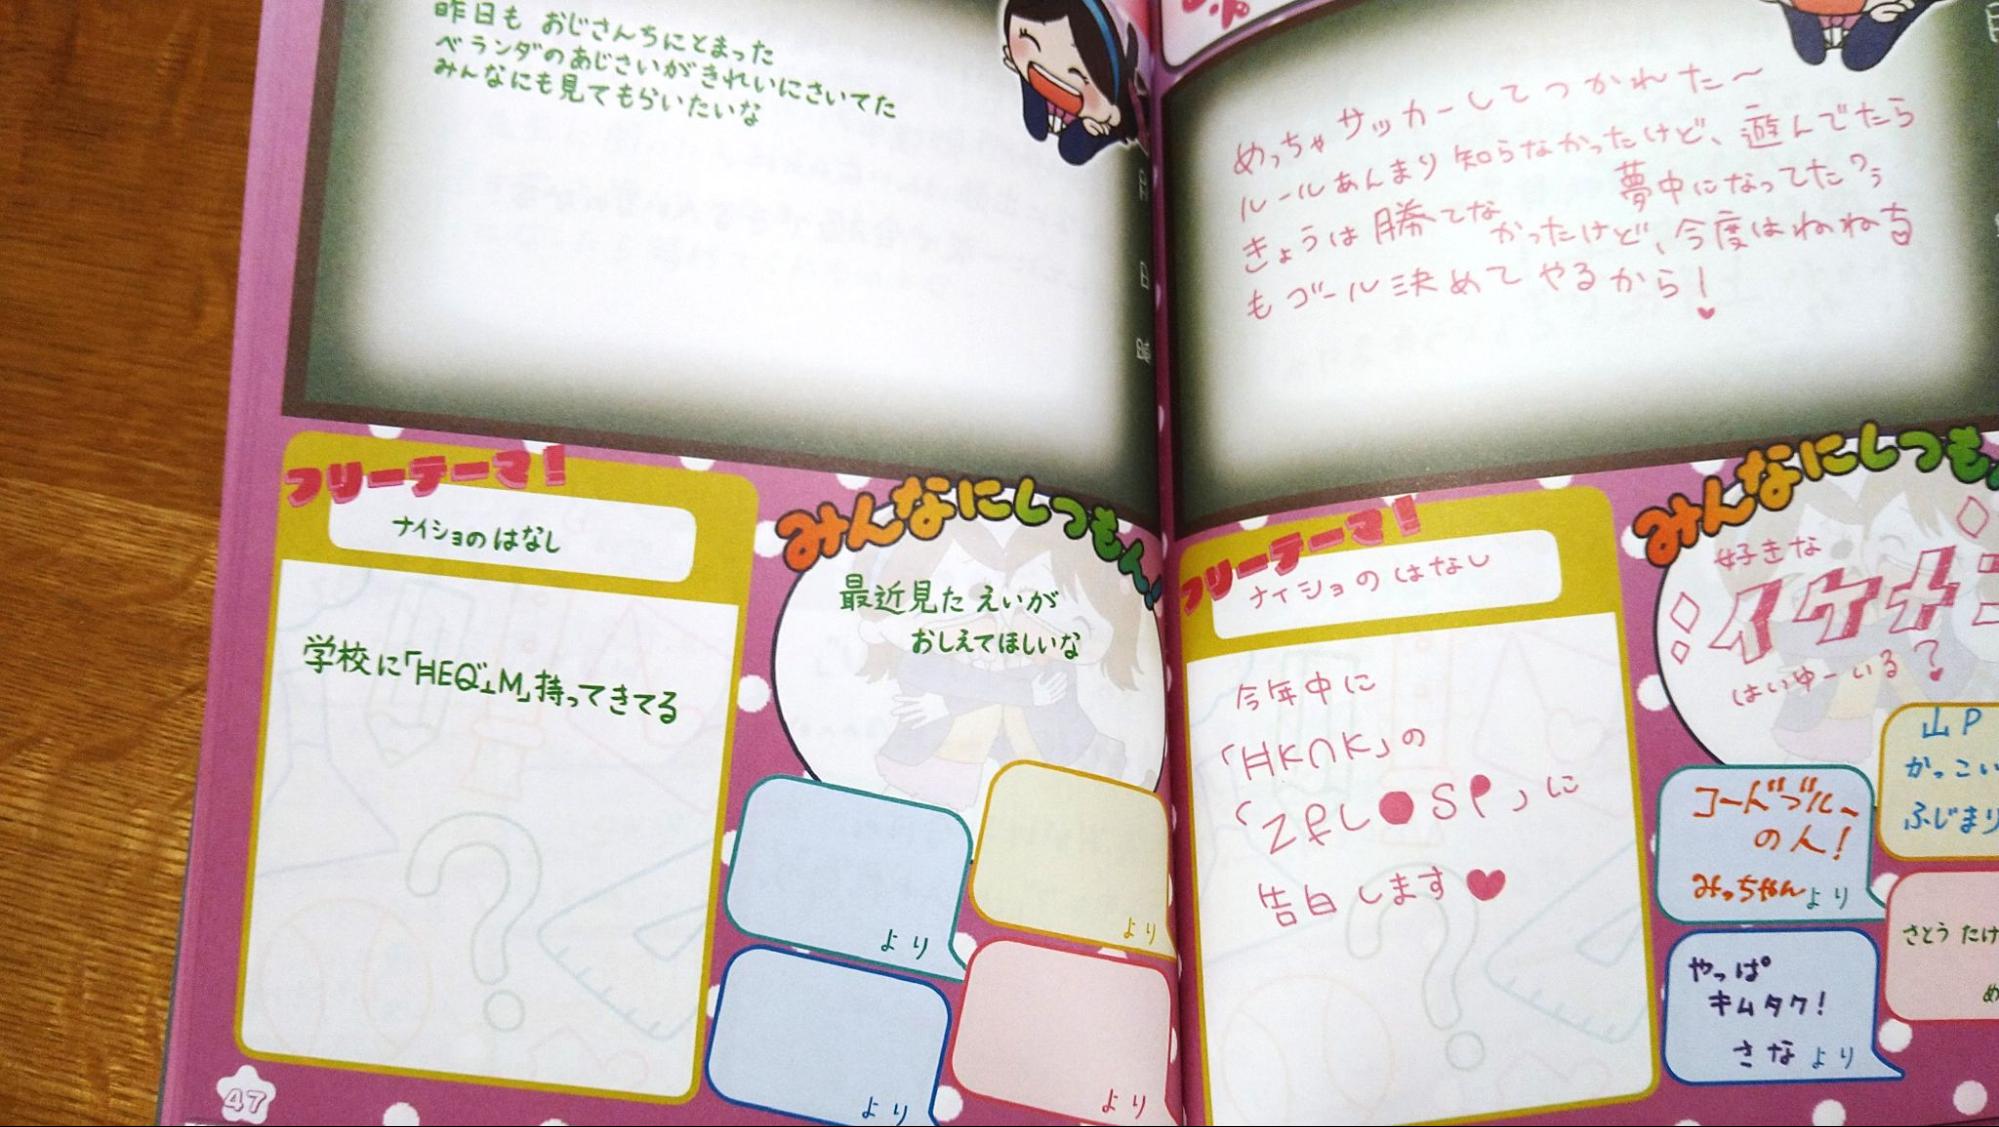 昨日も おじさんちにとまった
ベランダのあじさいがきれいにさいてた
みんなにも見てもらいたいな
フリーテーマ!
ナイショのはなし
学校に「HEQ"⊥M」持ってきてる
みんなにしつもん!!
最近見た えいが
おしえてほしいな
より
より
より
より
47
めっちゃサッカーしてつかれた〜
ルールあんまり知らなかったけど、遊んでたら
夢中になってた?う
きょうは勝てな
かったけど、今度はねねち
もゴール決めてやるから!♥
フリーテーマ!
ナイショのはなし
今年中に
「HK∩K」の
「ZfL●SP」に
告白します♥
みんなにしつも
好きな
イケメン
はいゆーいる?
山P
かっこい
ふじまり
コードブルー
の人!
みっちゃんより
さとうたけ
め
やっぱ
キムタク!
さなより